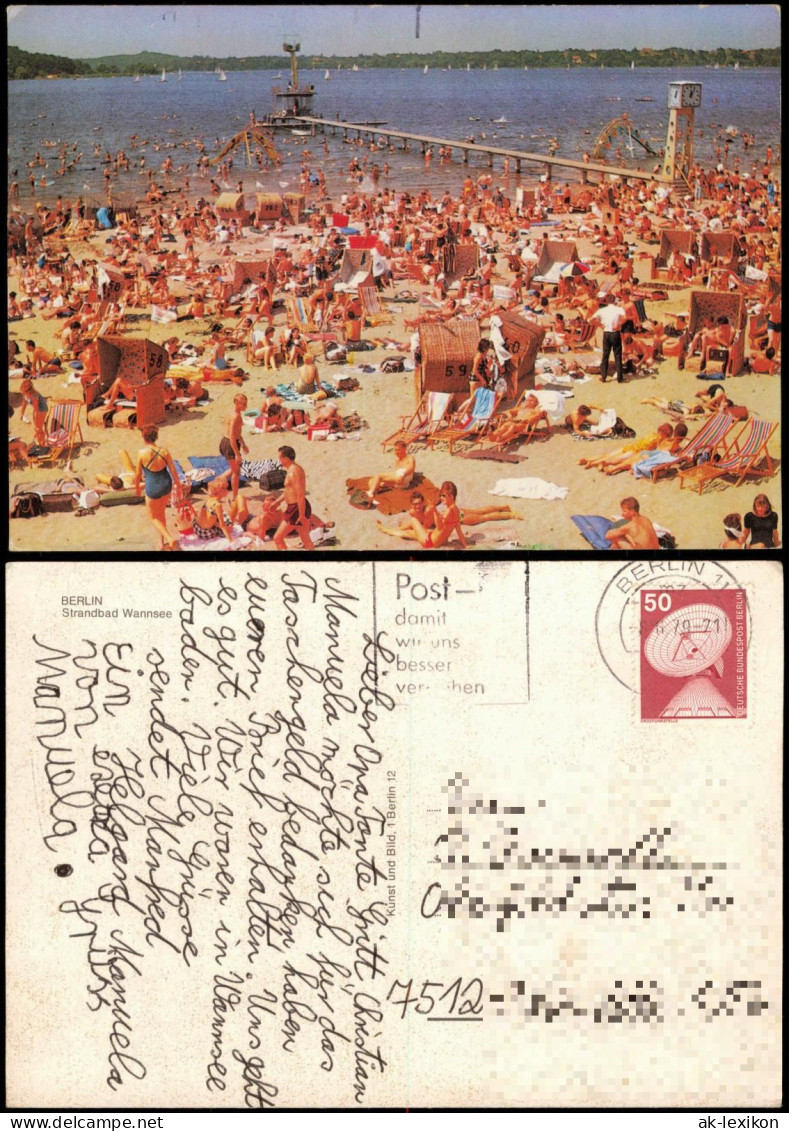 58
59
60
BERLIN
Strandbad Wannsee
Lieber Opa Tante Gritt, Christian
Manuela möchte sich für das
Taschengeld bedanken haben
eueren Brief erhalten. Uns geht
es gut. Wir waren in Wannsee
baden. Viele Grüsse
sendet Manfred
Ein Helgaard Manuela
von
Manuela.
Kunst und Bild, 1 Berlin 12
Post-
damit
wir uns
besser
BERLIN 11
50
DEUTSCHE BUNDESPOST BERLIN
ERDEFUNKSTELLE
7512
ak-lexikon.de